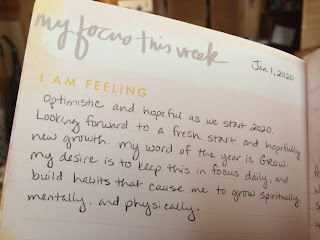 my focus this week
Jan 1, 2020
I AM FEELING
Optimistic and hopeful as we start 2020.
Looking forward to a fresh start and hopefully
new growth. my word of the year is GROW.
my desire is to keep this in focus daily, and
build habits that cause me to grow spiritually,
mentally, and physically.